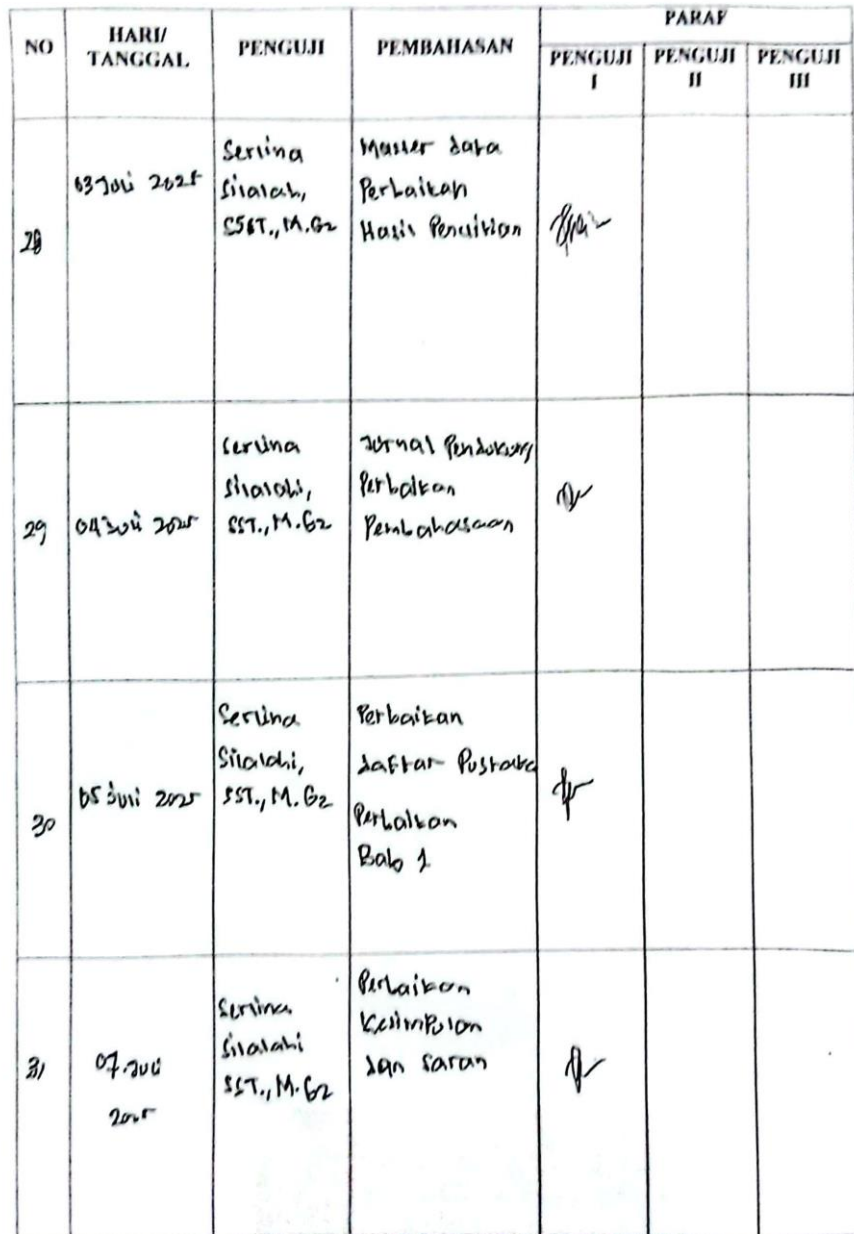 NO
HARI/
TANGGAL
PENGUJI
PEMBAHASAN
PARAF
PENGUJI
I
PENGUJI
II
PENGUJI
III
28
03 Juli 2025
Serlina
Silalahi,
SST., M.Gz
Master data
Perbaikan
Hasil Penelitian
29
04 Juli 2025
Serlina
Silalahi,
SST., M.Gz
Jurnal Pendukung
Perbaikan
Pembahasaan
30
05 Juli 2025
Serlina
Silalahi,
SST., M.Gz
Perbaikan
daftar Pustaka
Perbaikan
Bab 1
31
07 Juli
2025
Serlina
Silalahi
SST., M.Gz
Perbaikan
Kesimpulan
dan saran